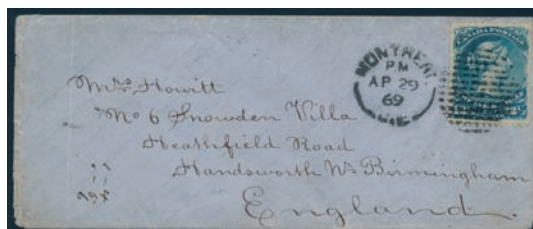 CANADA POSTAGE
MONTREAL
PM
AP 29
69
C.E.
Mrs Howitt
No 6 Snowden Villa
Heathfield Road
Handsworth Nr Birmingham
England.